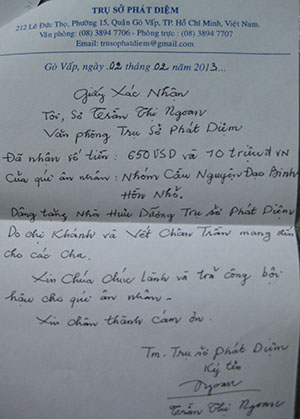 TRỤ SỞ PHÁT DIỆM
212 Lê Đức Thọ, Phường 15, Quận Gò Vấp, TP. Hồ Chí Minh, Việt Nam.
Văn phòng: (08) 3894 7706 - Phòng trực : (08) 3894 7707
Email: trusophatdiem@gmail.com
Gò Vấp, ngày 02 tháng 02 năm 2013...
Giấy Xác Nhận
Tôi, Sơ Trần Thị Ngoan
Văn phòng Trụ Sở Phát Diệm
Đã nhận số tiền : 650 USD và 10 triệu đ VN
Của quí ân nhân : Nhóm Cầu Nguyện Đạo Binh
Hồn Nhỏ.
Dâng tặng Nhà Hưu Dưỡng Trụ sở Phát Diệm
Do chị Khánh và Vết Chân Trần mang đến
cho các cha.
Xin Chúa chúc lành và trả công bội
hậu cho quí ân nhân.
Xin chân thành cám ơn.
Tm. Trụ sở Phát Diệm
Ký tên
Ngoan
Trần Thị Ngoan